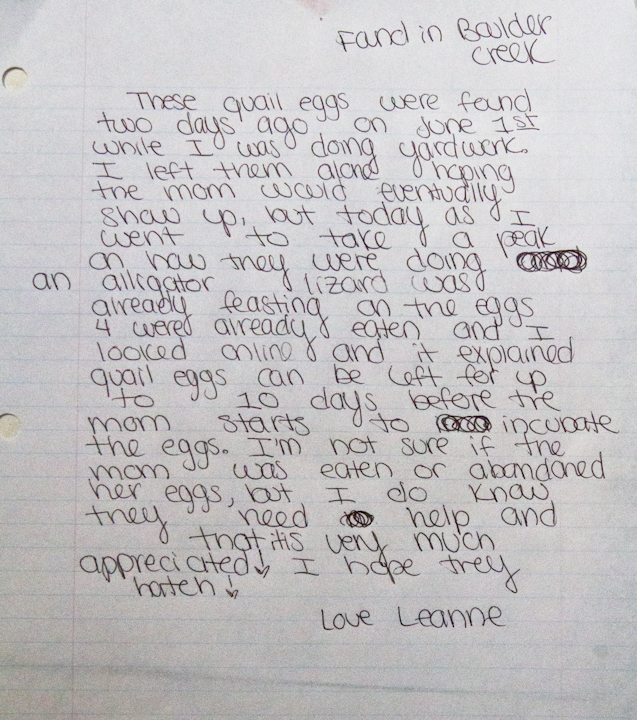 Found in Boulder
Creek
These quail eggs were found
two days ago on June 1st
while I was doing yardwork.
I left them alone hoping
the mom would eventually
show up, but today as I
went to take a peak
on how they were doing
an alligator lizard was
already feasting on the eggs
4 were already eaten and I
looked online and it explained
quail eggs can be left for up
to 10 days before the
mom starts to incubate
the eggs. I'm not sure if the
mom was eaten or abandoned
her eggs, but I do know
they need help and
that is very much
appreciated! I hope they
hatch!
Love Leanne